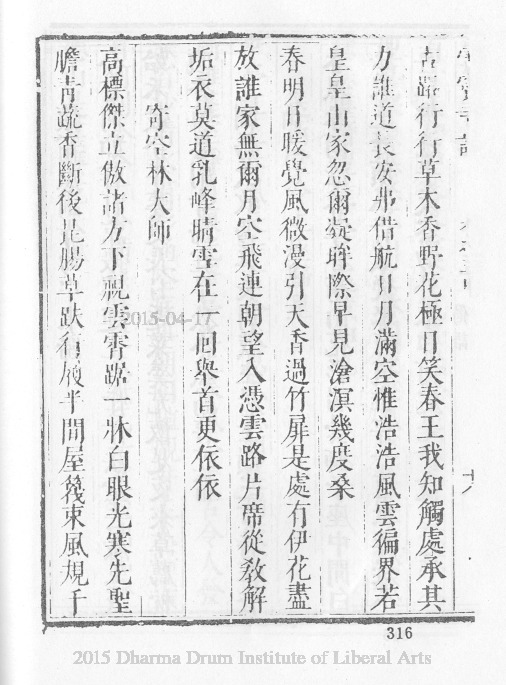 古路行行草木香野花極目笑春王我知觸處承其
力誰道長安弗借航日月滿空惟浩浩風雲徧界若
皇皇山家忽爾凝眸際早見滄溟幾度桑
春明日暖覺風微漫引天香過竹扉是處有伊花盡
放誰家無爾月空飛連朝望入憑雲路片席從教解
垢衣莫道乳峰晴雪在一回舉首更依依
寄空林大師
高標傑立傲諸方下視雲霄踞一牀白眼光寒先聖
膽青蔬香斷後昆腸草趺行履半間屋篾束風規千
十八
316
2015-04-17
2015 Dharma Drum Institute of Liberal Arts